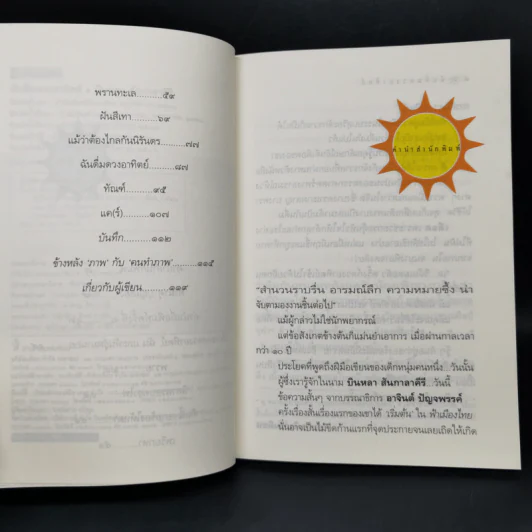 พรานทะเล..........๕๙
ฝันสีเทา..........๖๙
แม้ว่าต้องไกลกันนิรันดร........๗๗
ฉันดื่มดวงอาทิตย์.........๘๗
ทัณฑ์.........๙๕
แค(ร์).........๑๐๗
บันทึก.........๑๑๒
ข้างหลัง 'ภาพ' กับ 'คนทำภาพ'.........๑๑๕
เกี่ยวกับผู้เขียน.........๑๑๙
คำนำสำนักพิมพ์
"สำนวนราบรื่น อารมณ์ลึก ความหมายซึ้ง น่า
จับตามองงานชิ้นต่อไป"
แม้ผู้กล่าวไม่ใช่นักพยากรณ์
แต่ข้อสังเกตข้างต้นก็แม่นยำเอาการ เมื่อผ่านกาลเวลา
กว่า ๑๐ ปี
ประโยคที่พูดถึงฝีมือเขียนของเด็กหนุ่มคนหนึ่ง วันนั้น
ผู้ซึ่งเรารู้จักในนาม บินหลา สันกาลาคีรี วันนี้
ข้อความสั้นๆ จากบรรณาธิการ อาจินต์ ปัญจพรรค์
ครั้งเรื่องสั้นเรื่องแรกของเขาได้ 'เริ่มต้น' ใน ฟ้าเมืองไทย
นั่นอาจเป็นไม้ขีดก้านแรกที่จุดประกายจนเลยเถิดให้เกิด